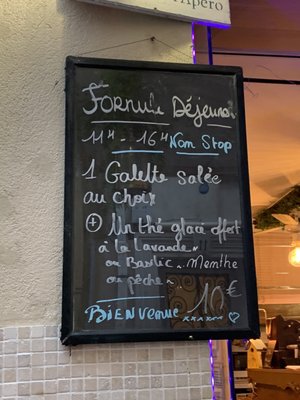 l'Apéro
Formule Déjeuner
11H - 16H Non Stop
1 Galette salée
au choix
+ Un thé glacé offert
à la lavande
ou Basilic - Menthe
ou pêche -
Bienvenue 10€